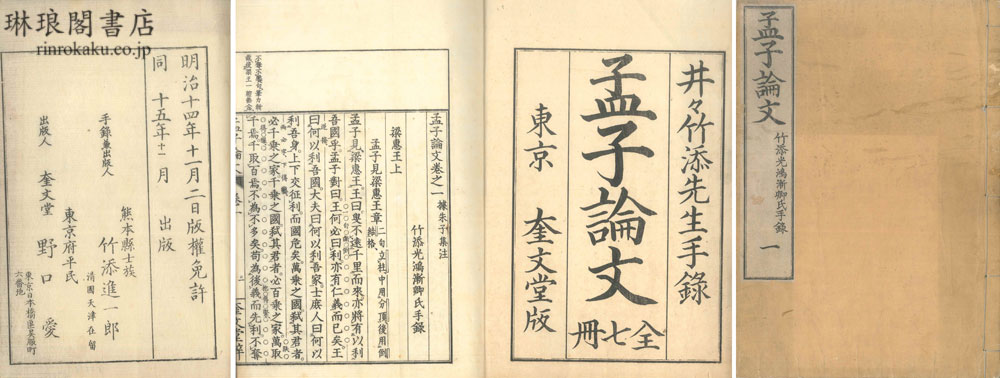 琳琅閣書店
rinrokaku.co.jp
孟子論文
竹添光鴻漸卿氏手錄
一
井々竹添先生手錄
孟子論文
全七冊
東京 奎文堂版
孟子論文卷之一 據朱子集注
竹添光鴻漸卿氏手錄
梁惠王上
孟子見梁惠王章
二句立柱中用分頂後用倒
結格
孟子見梁惠王王曰叟不遠千里而來亦將有以利
吾國乎孟子對曰王何必曰利亦有仁義而已矣王
曰何以利吾國大夫曰何以利吾家士庶人曰何以
利吾身上下交征利而國危矣萬乘之國弒其君者
必千乘之家千乘之國弒其君者必百乘之家萬取
千焉千取百焉不為不多矣苟為後義而先利不奪
明治十四年十一月二日版權免許
同 十五年十一月 出版
熊本縣士族
手錄兼出版人 竹添進一郎
清國天津在留
東京府平民
出版人 奎文堂 野口 愛
六番地